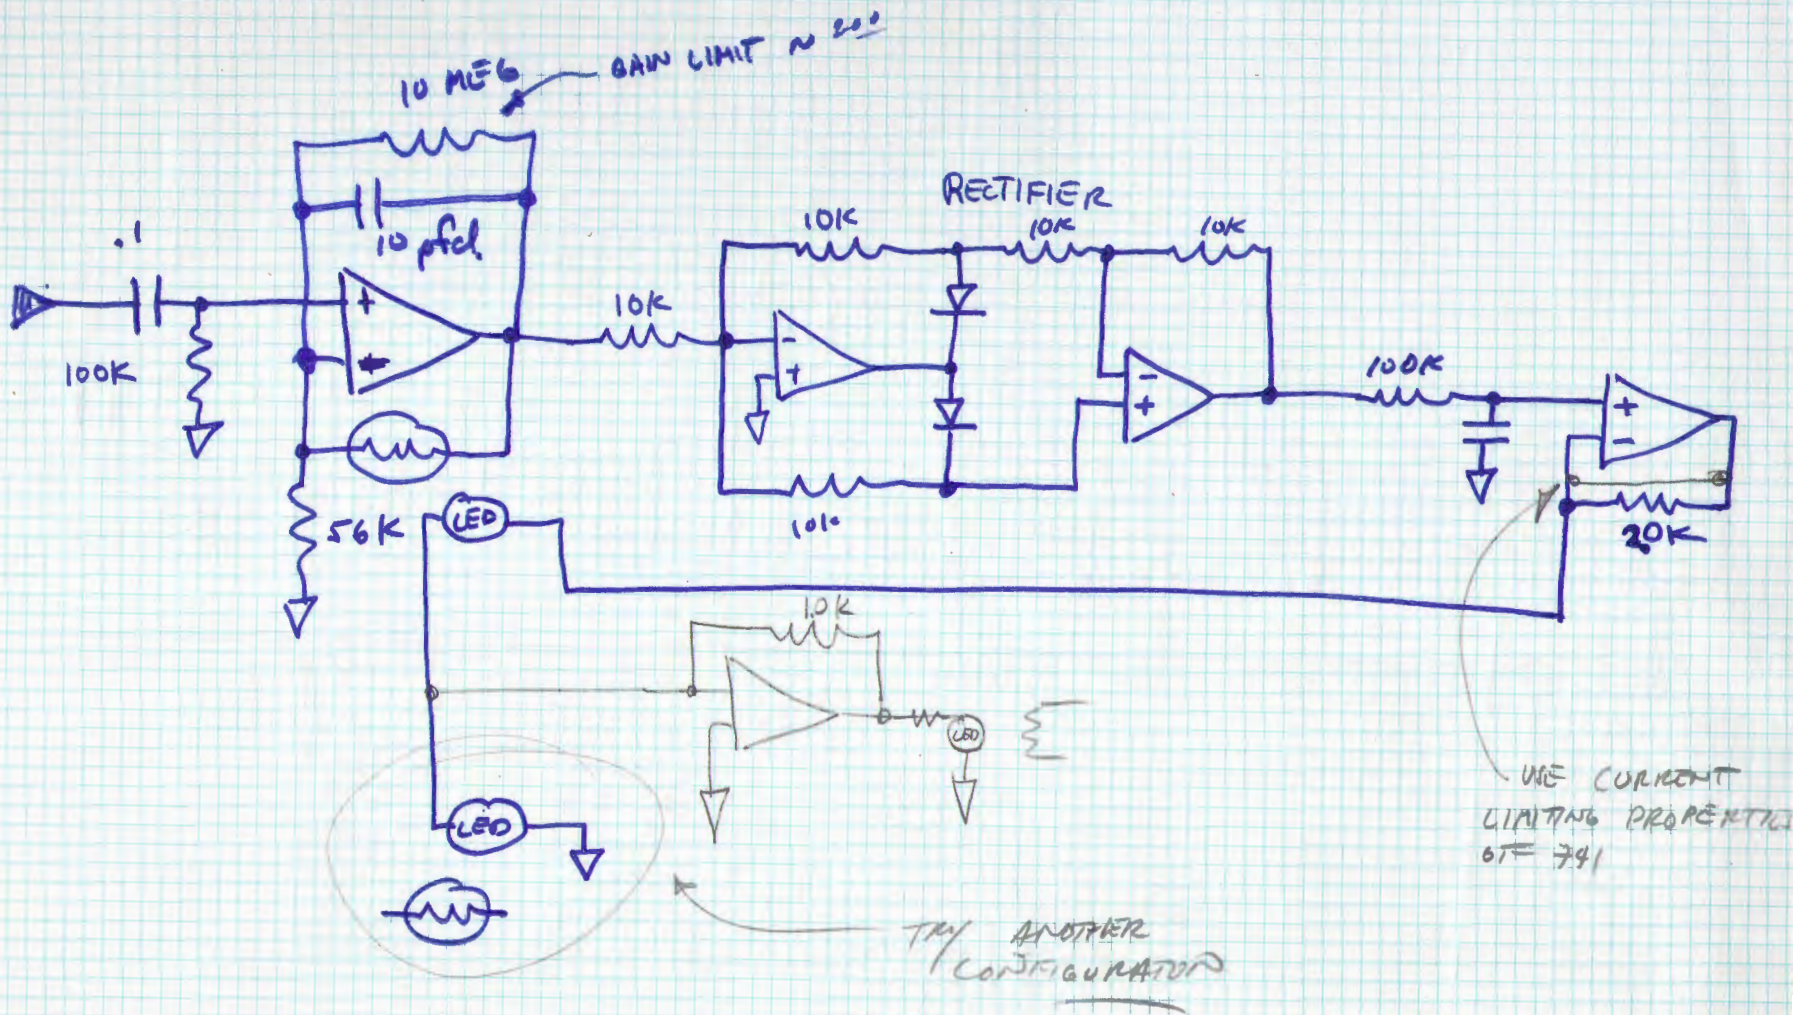 10 MEG
GAIN LIMIT ~ 200
.1
10 pfd.
RECTIFIER
10K
10K
10K
+
100K
10K
-
+
-
+
100K
+
-
56K
LED
10K
2.0K
10K
LED
LED
USE CURRENT
LIMITING PROPERTIES
OF 741
TRY ANOTHER
CONFIGURATION